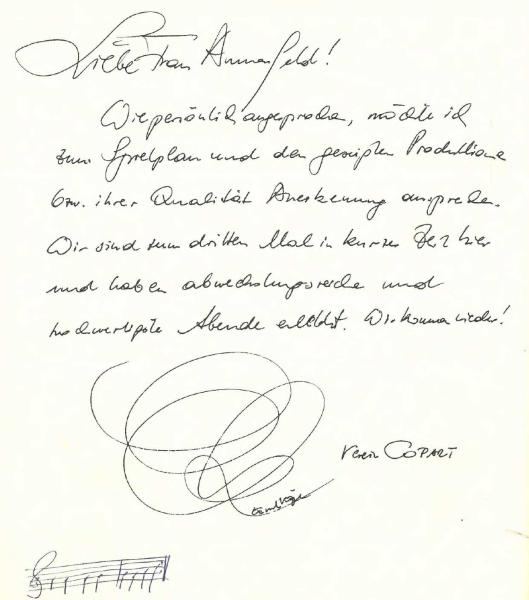 Liebe Frau Ammerfeld!
Wie persönlich angesprochen, möchte ich
zum Spielplan und den gezeigten Produktionen
bzw. ihrer Qualität Anerkennung aussprechen.
Wir sind zum dritten Mal in kurzer Zeit hier
und haben abwechslungsreiche und
hochwertigste Abende erlebt. Wir kommen wieder!
Verein COPART